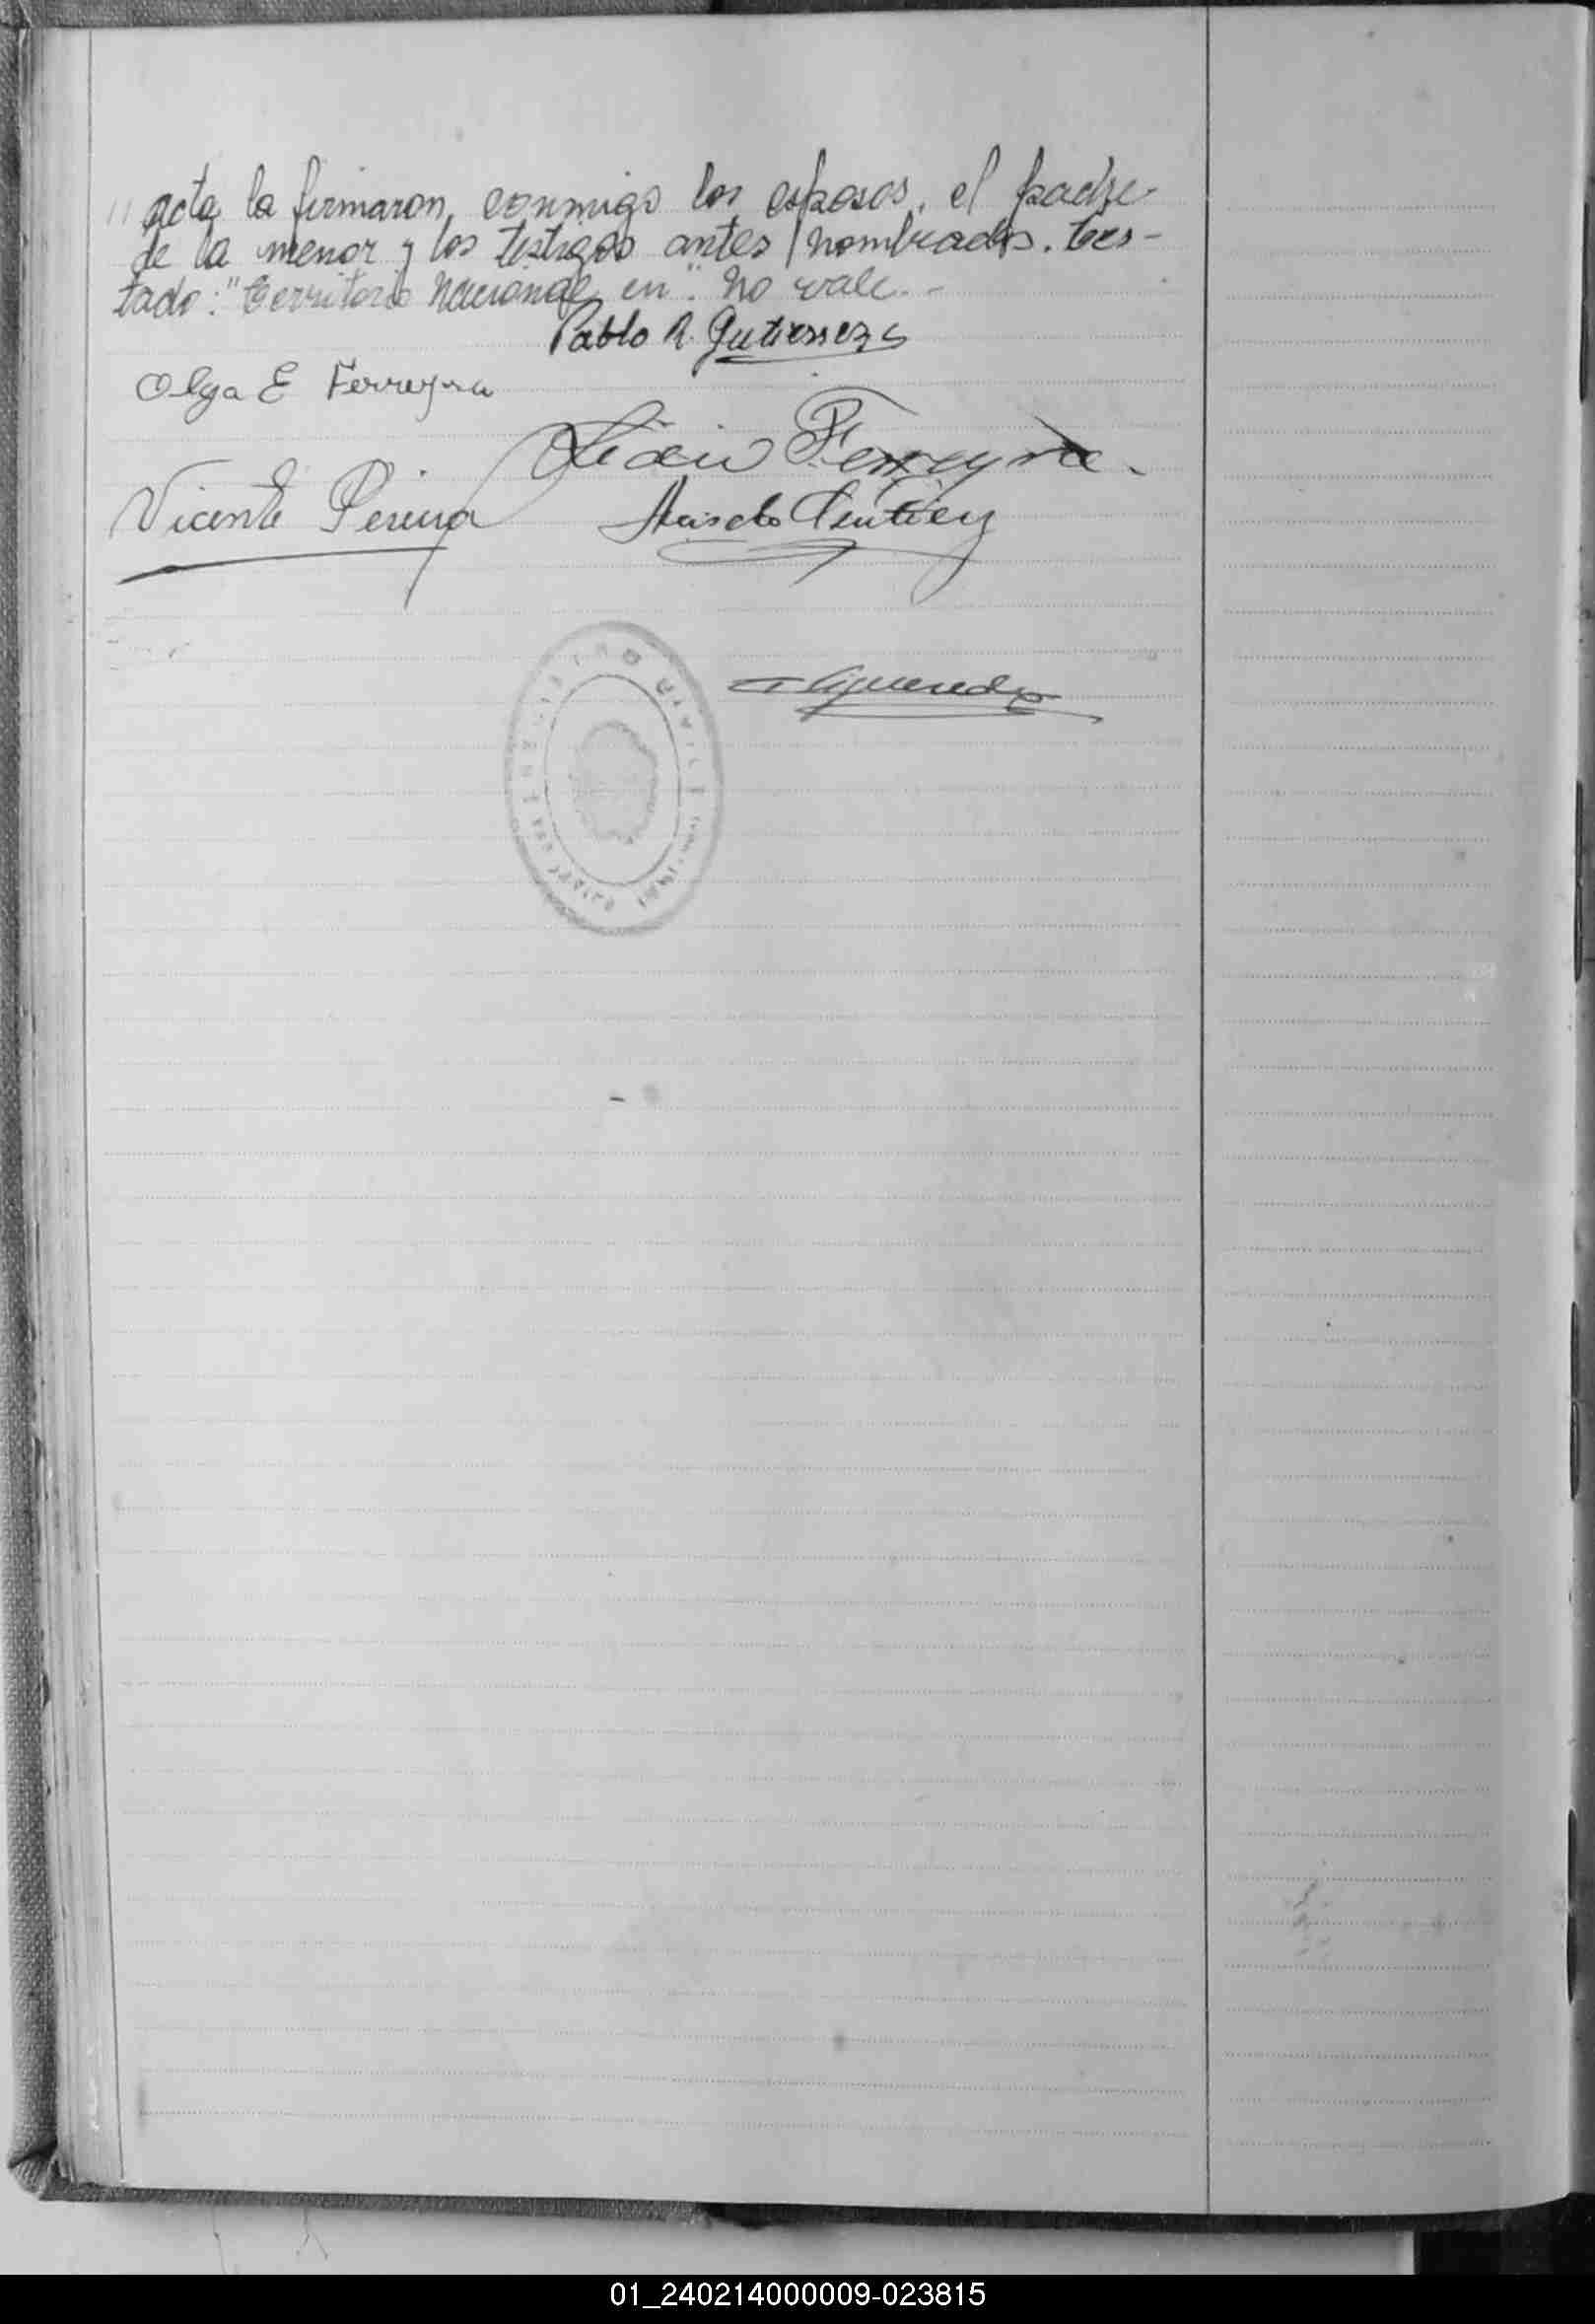 // acta la firmaron, conmigo los esposos, el padre
de la menor y los testigos antes nombrados. Tes-
tado: "Territorio Nacional en". No vale.-
Pablo R. Gutierrez
Olga E Ferreyra
Ferreyra
Vicente Pereira
Figueredo
01_240214000009-023815